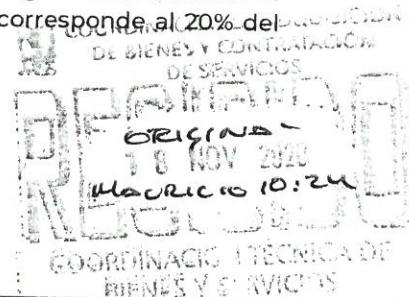 corresponde al 20% del
COORDINACIÓN DE ADQUISICIÓN
DE BIENES Y CONTRATACIÓN
DE SERVICIOS
RECIBIDO
ORIGINAL
18 NOV 2020
MAURICIO 10:24
COORDINACIÓN TÉCNICA DE
BIENES Y SERVICIOS